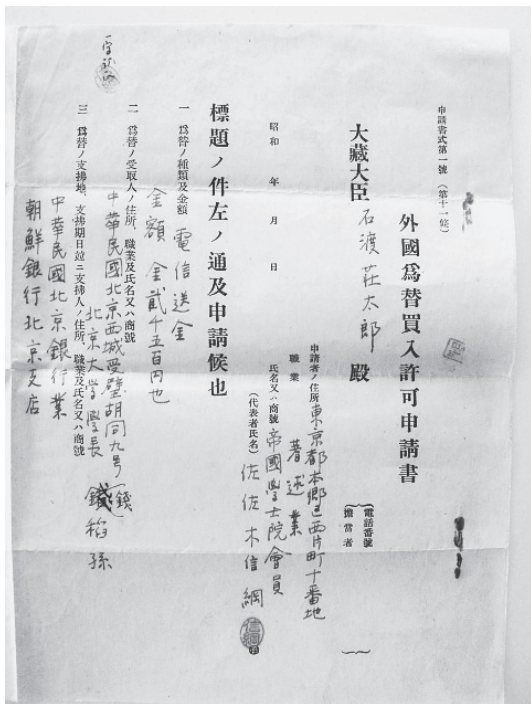 申請書式第一號（第十一條）
外國爲替買入許可申請書
大藏大臣 石渡荘太郎 殿
電話番號
擔當者
昭和 年 月 日
申請者ノ住所 東京都本郷区西片町十番地
職業 著述業
氏名又ハ商號 帝國學士院會員
（代表者氏名） 佐佐木信綱
信綱
標題ノ件左ノ通及申請候也
一 爲替ノ種類及金額 電信送金
金額 金貳千五百円也
二 爲替ノ受取人ノ住所、職業及氏名又ハ商號
中華民國北京西城受璧胡同九号
北京大学學長 錢稻孫
三 爲替ノ支拂地、支拂期日竝ニ支拂人ノ住所、職業及氏名又ハ商號
中華民國北京銀行業
朝鮮銀行北京支店